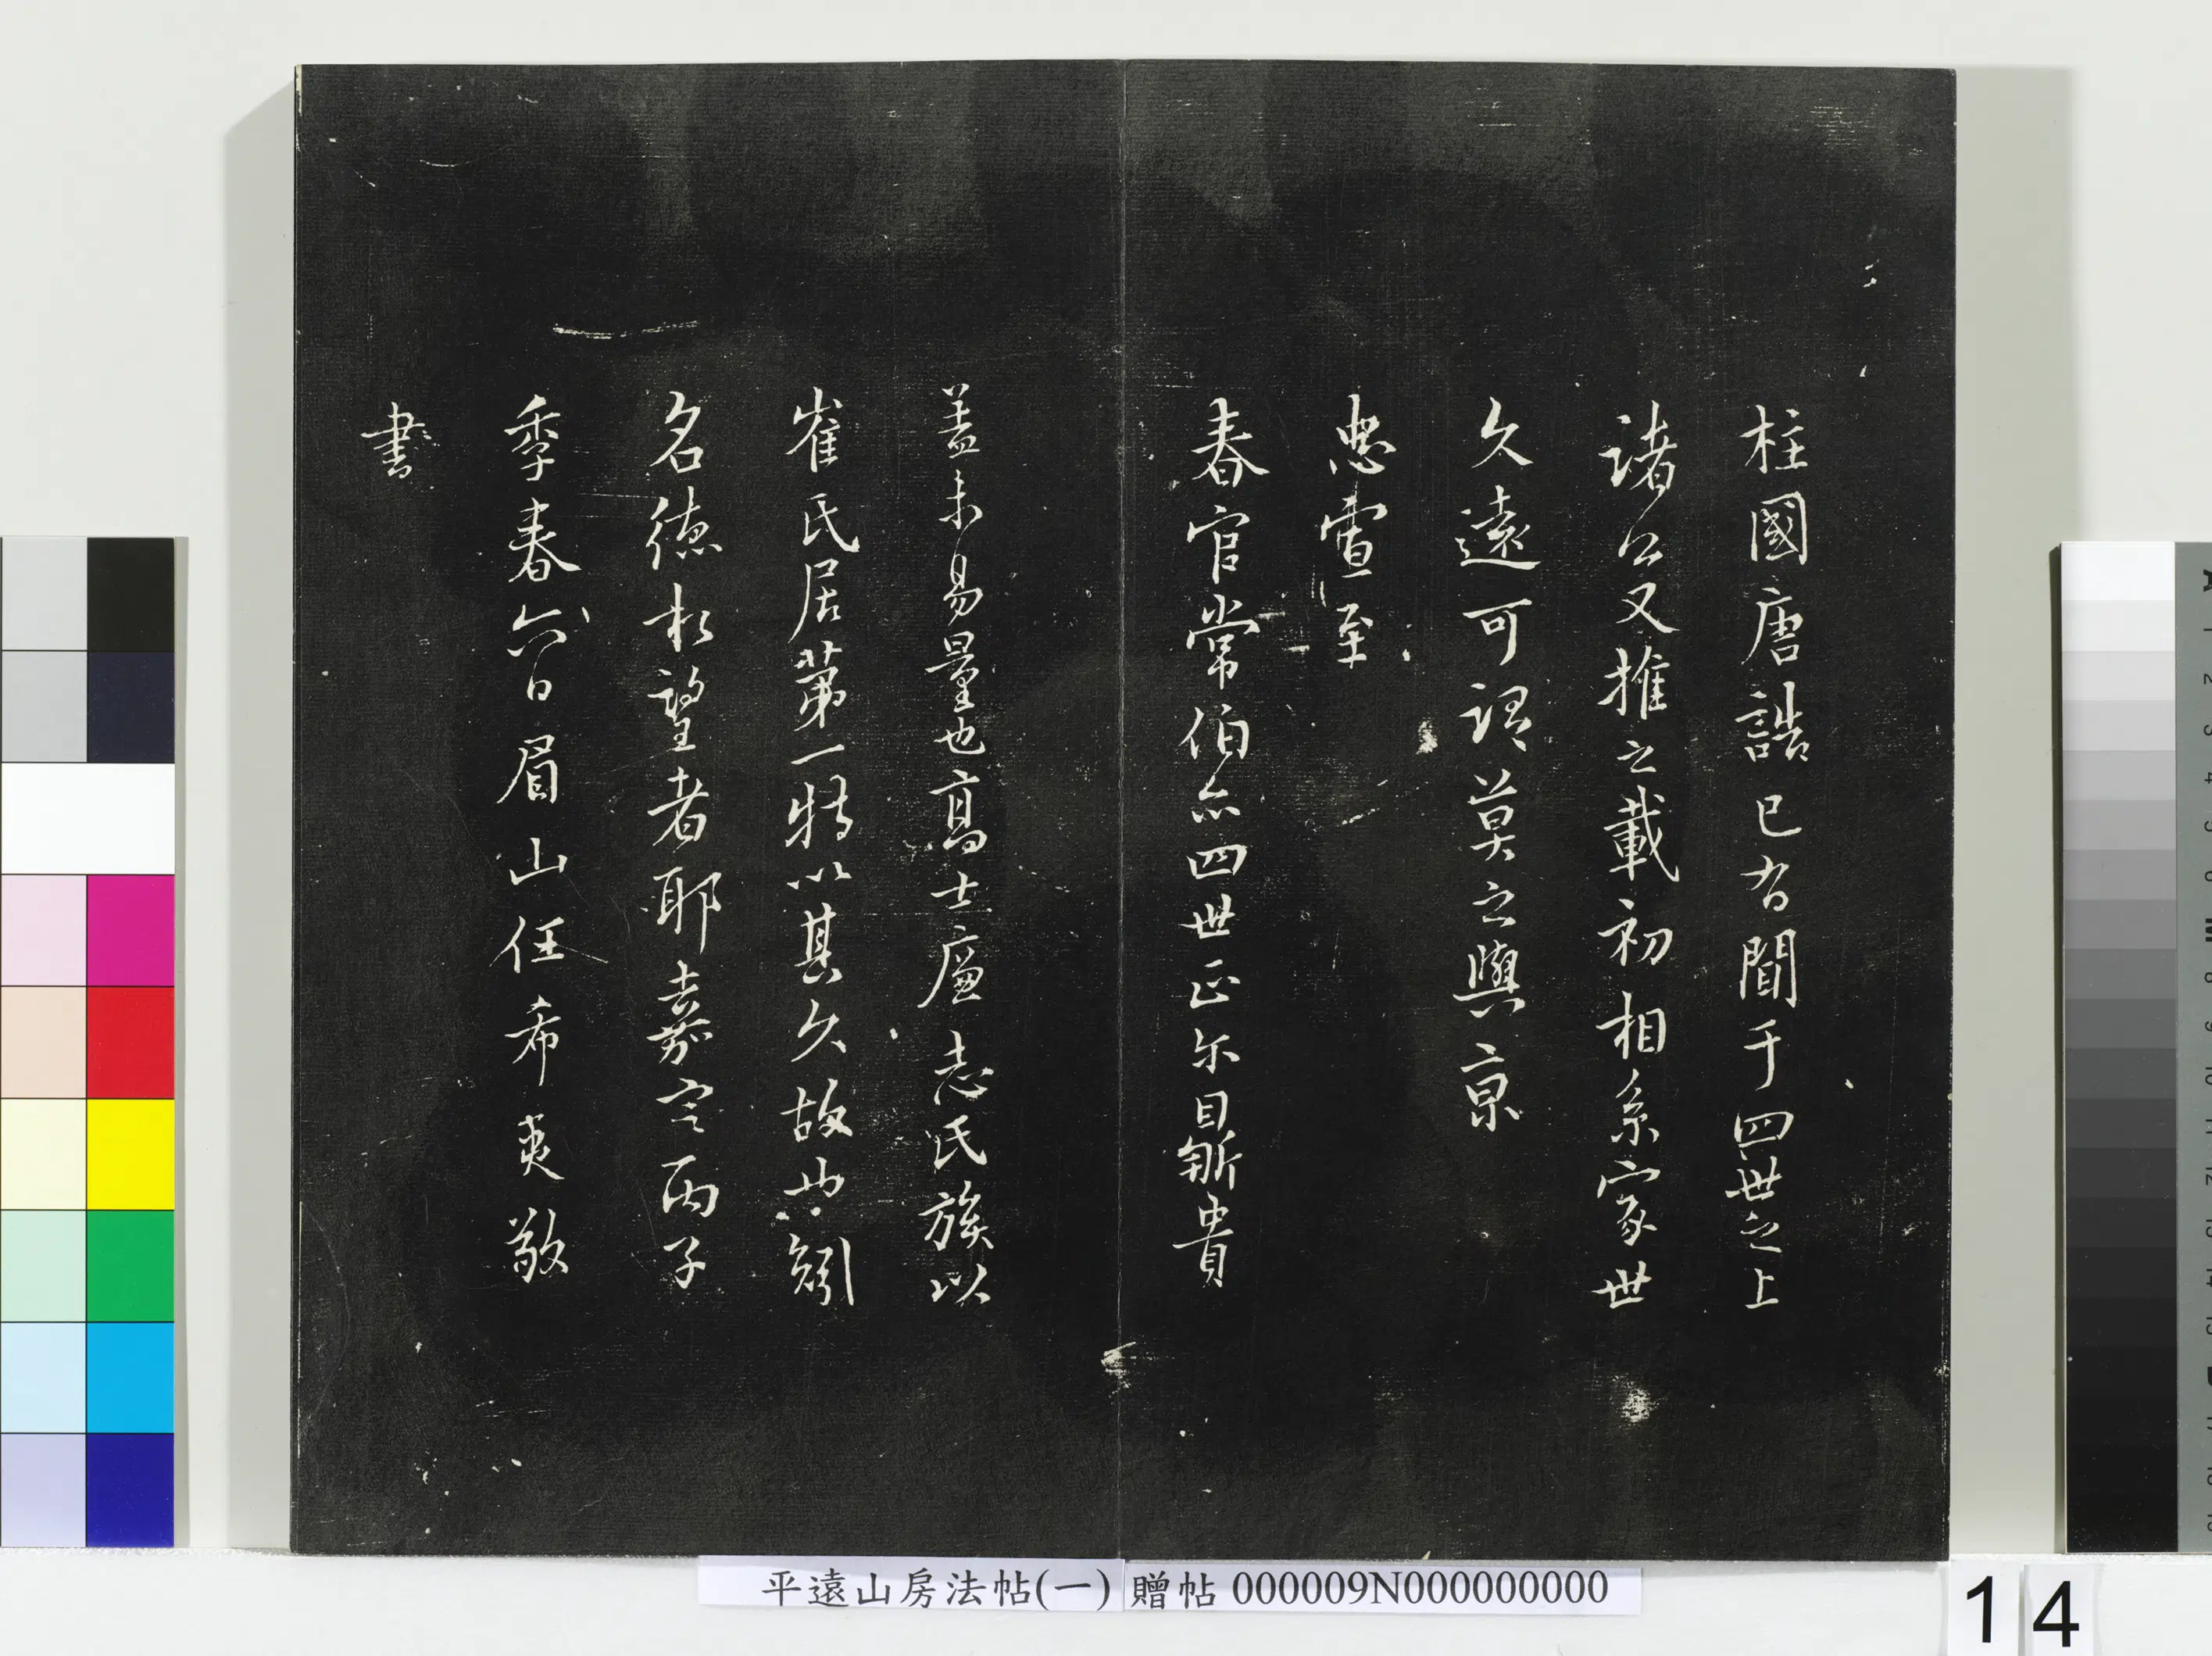 柱國唐誥已有聞于四世之上
諸公又推之載初相系家世
久遠可謂莫之與京
忠宣至
春官常伯亦四世正尔目斯貴
蓋未易量也高士廉志氏族以
崔氏居第一特以其久故也矧
名德相望者耶嘉定丙子
季春六日眉山任希夷敬
書
平遠山房法帖(一) 贈帖 000009N000000000
14